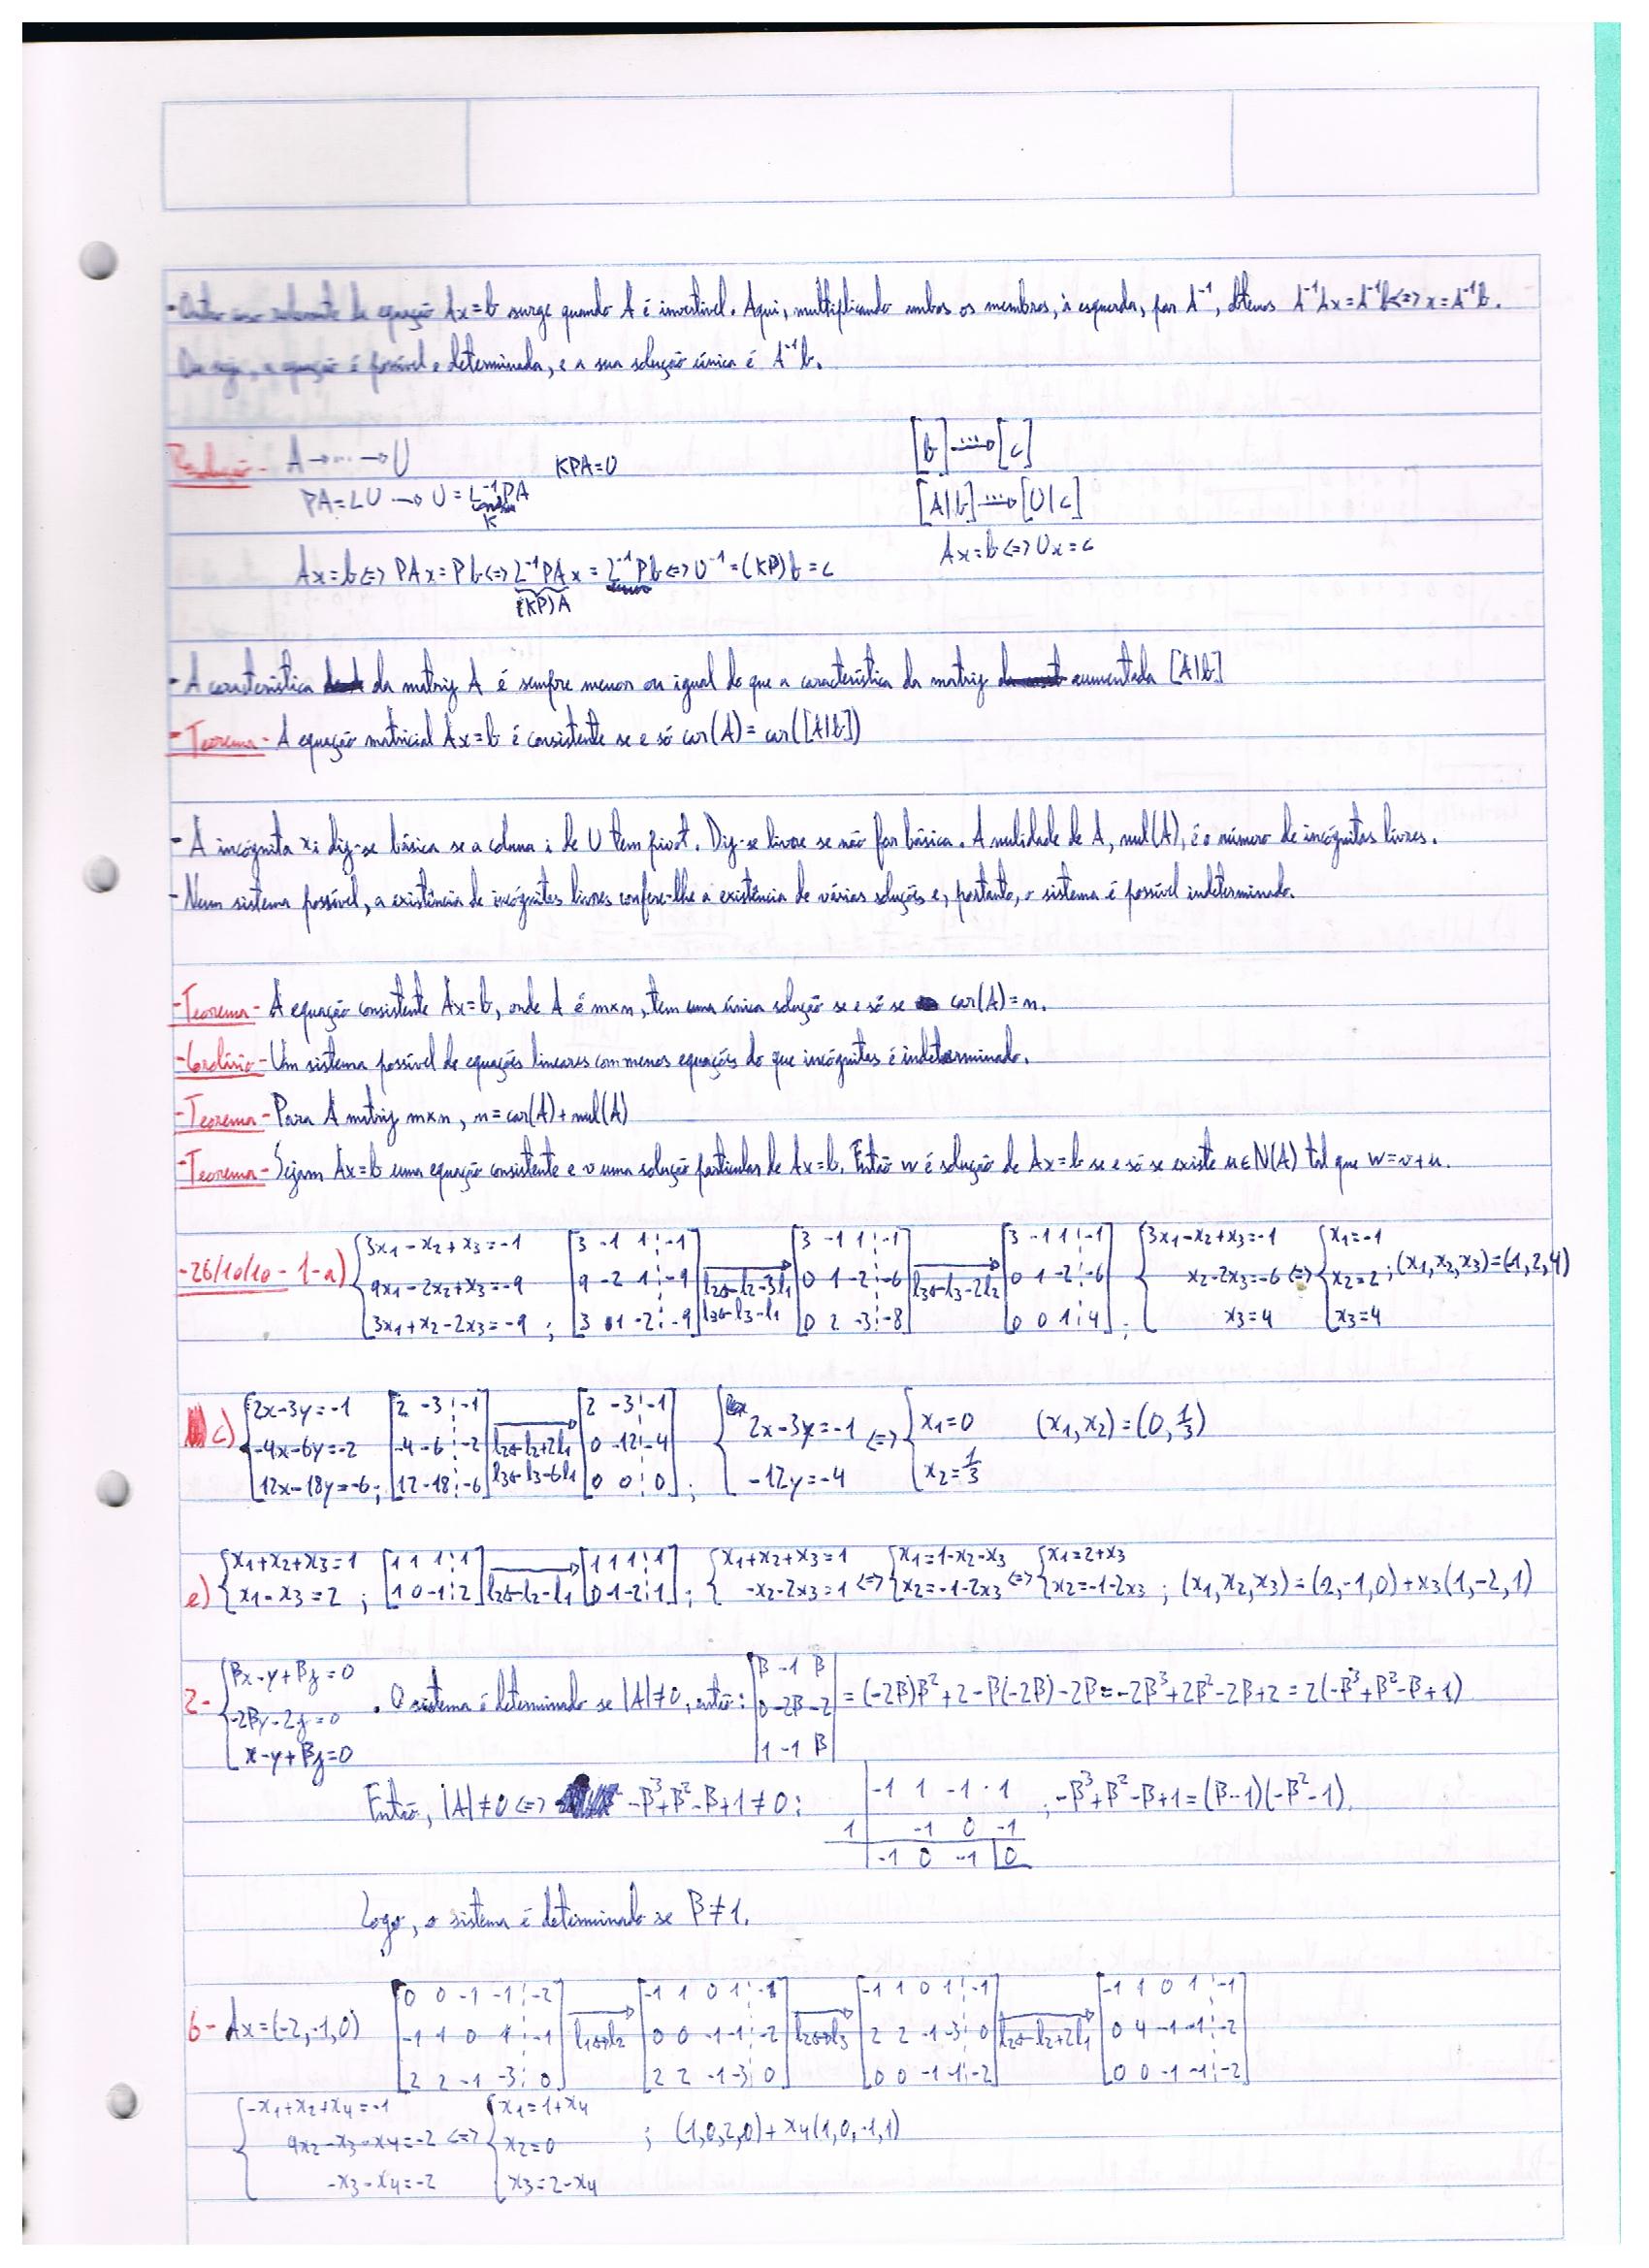 - Outro caso relevante da equação Ax=b surge quando A é invertível. Aqui, multiplicando ambos os membros, à esquerda, por A⁻¹, obtemos A⁻¹Ax=A⁻¹b<=>x=A⁻¹b.
Ou seja, a equação é possível e determinada, e a sua solução única é A⁻¹b.
Resolução - A→...→U KPA=U [b]...→[c]
PA=LU → U=L⁻¹PA [A|b]...→[U|c]
K
Ax=b<=>PAx=Pb<=>L⁻¹PAx=L⁻¹Pb<=>U⁻¹=(KP)b=c Ax=b<=>Ux=c
(KP)A
- A característica da matriz A é sempre menor ou igual do que a característica da matriz aumentada [A|b]
- Teorema - A equação matricial Ax=b é consistente se e só car(A)=car([A|b])
- A incógnita xi diz-se básica se a coluna i de U tem pivot. Diz-se livre se não for básica. A nulidade de A, nul(A), é o número de incógnitas livres.
- Num sistema possível, a existência de incógnitas livres confere-lhe a existência de várias soluções e, portanto, o sistema é possível indeterminado.
- Teorema - A equação consistente Ax=b, onde A é m×n, tem uma única solução se e só se car(A)=n.
- Corolário - Um sistema possível de equações lineares com menos equações do que incógnitas é indeterminado.
- Teorema - Para A matriz m×n, n=car(A)+nul(A)
- Teorema - Sejam Ax=b uma equação consistente e v uma solução particular de Ax=b. Então w é solução de Ax=b se e só se existe u∈N(A) tal que w=v+u.
3x1-x2+x3=-1 [3 -1 1 ¦ -1] [3 -1 1 ¦ -1] [3 -1 1 ¦ -1] 3x1-x2+x3=-1 x1=-1
-26/10/10 - 1-a) 9x1-2x2+x3=-9 [9 -2 1 ¦ -9] l2←l2-3l1 [0 1 -2 ¦ -6] l3←l3-2l2 [0 1 -2 ¦ -6] x2-2x3=-6 <=> x2=2 ; (x1,x2,x3)=(-1,2,4)
3x1+x2-2x3=-9 ; [3 1 -2 ¦ -9] l3←l3-l1 [0 2 -3 ¦ -8] [0 0 1 ¦ 4] ; x3=4 x3=4
2x-3y=-1 [2 -3 ¦ -1] [2 -3 ¦ -1]
c) -4x-6y=-2 [-4 -6 ¦ -2] l2←l2+2l1 [0 -12 ¦ -4] 2x-3y=-1 <=> x1=0 (x1,x2)=(0,1/3)
12x-18y=-6 ; [12 -18 ¦ -6] l3←l3-6l1 [0 0 ¦ 0] ; -12y=-4 x2=1/3
x1+x2+x3=1 [1 1 1 ¦ 1] [1 1 1 ¦ 1] x1+x2+x3=1 x1=1-x2-x3 x1=2+x3
e) x1-x3=2 ; [1 0 -1 ¦ 2] l2←l2-l1 [0 -1 -2 ¦ 1] ; -x2-2x3=1 <=> x2=-1-2x3 <=> x2=-1-2x3 ; (x1,x2,x3)=(2,-1,0)+x3(1,-2,1)
βx-y+βz=0 |β -1 β|
2- -2βy-2z=0 . O sistema é determinado se |A|≠0, então: |0 -2β -2| =(-2β)β²+2-β(-2β)-2β=-2β³+2β²-2β+2=2(-β³+β²-β+1)
x-y+βz=0 |1 -1 β|
Então, |A|≠0<=> -β³+β²-β+1≠0: -1 1 -1 1 ; -β³+β²-β+1=(β-1)(-β²-1).
1 -1 0 -1
-1 0 -1 |0
Logo, o sistema é determinado se β≠1.
[0 0 -1 -1 ¦ -2] [-1 1 0 1 ¦ -1] [-1 1 0 1 ¦ -1] [-1 1 0 1 ¦ -1]
6- Ax=(-2,-1,0) [-1 1 0 1 ¦ -1] l1↔l2 [0 0 -1 -1 ¦ -2] l2↔l3 [2 2 -1 -3 ¦ 0] l2←l2+2l1 [0 4 -1 -1 ¦ -2]
[2 2 -1 -3 ¦ 0] [2 2 -1 -3 ¦ 0] [0 0 -1 -1 ¦ -2] [0 0 -1 -1 ¦ -2]
-x1+x2+x4=-1 x1=1+x4
4x2-x3-x4=-2 <=> x2=0 ; (1,0,2,0)+x4(1,0,-1,1)
-x3-x4=-2 x3=2-x4